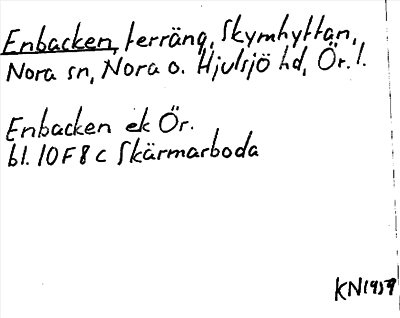 Enbacken, terräng, Skymhyttan,
Nora sn, Nora o. Hjulsjö hd, Ör. l.
Enbacken ek Ör.
bl. 10F8c Skärmarboda
KN1959